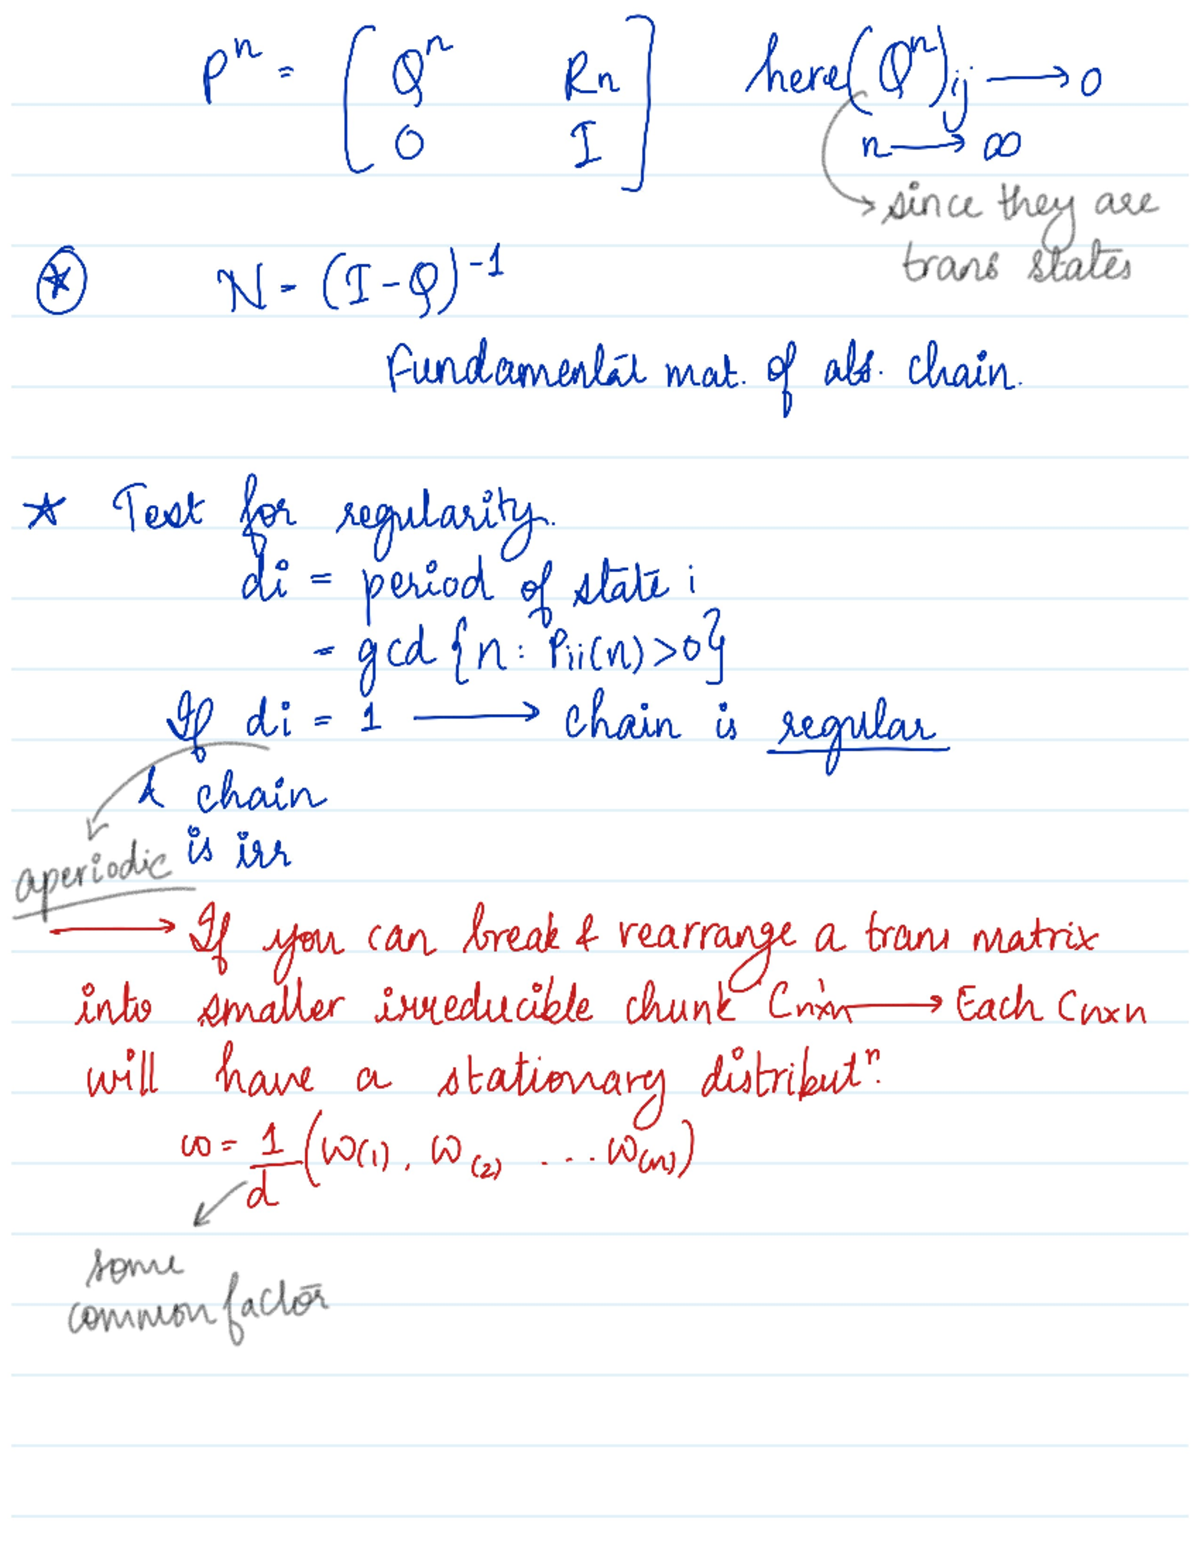 Pⁿ = [ Qⁿ Rn here (Qⁿ)ij ⟶ 0
0 I ] n ⟶ ∞
→ since they are
trans states
⊛ N = (I-Q)⁻¹
Fundamental mat. of abs. chain.
★ Test for regularity.
di = period of state i
= gcd {n: Pii(n)>0}
If di = 1 ⟶ chain is regular
& chain
is irr
aperiodic
⟶ If you can break & rearrange a trans matrix
into smaller irreducible chunk Cn×n ⟶ Each Cn×n
will have a stationary distributⁿ.
ω = 1/d (ω(1), ω(2) ... ω(m))
some
common factor